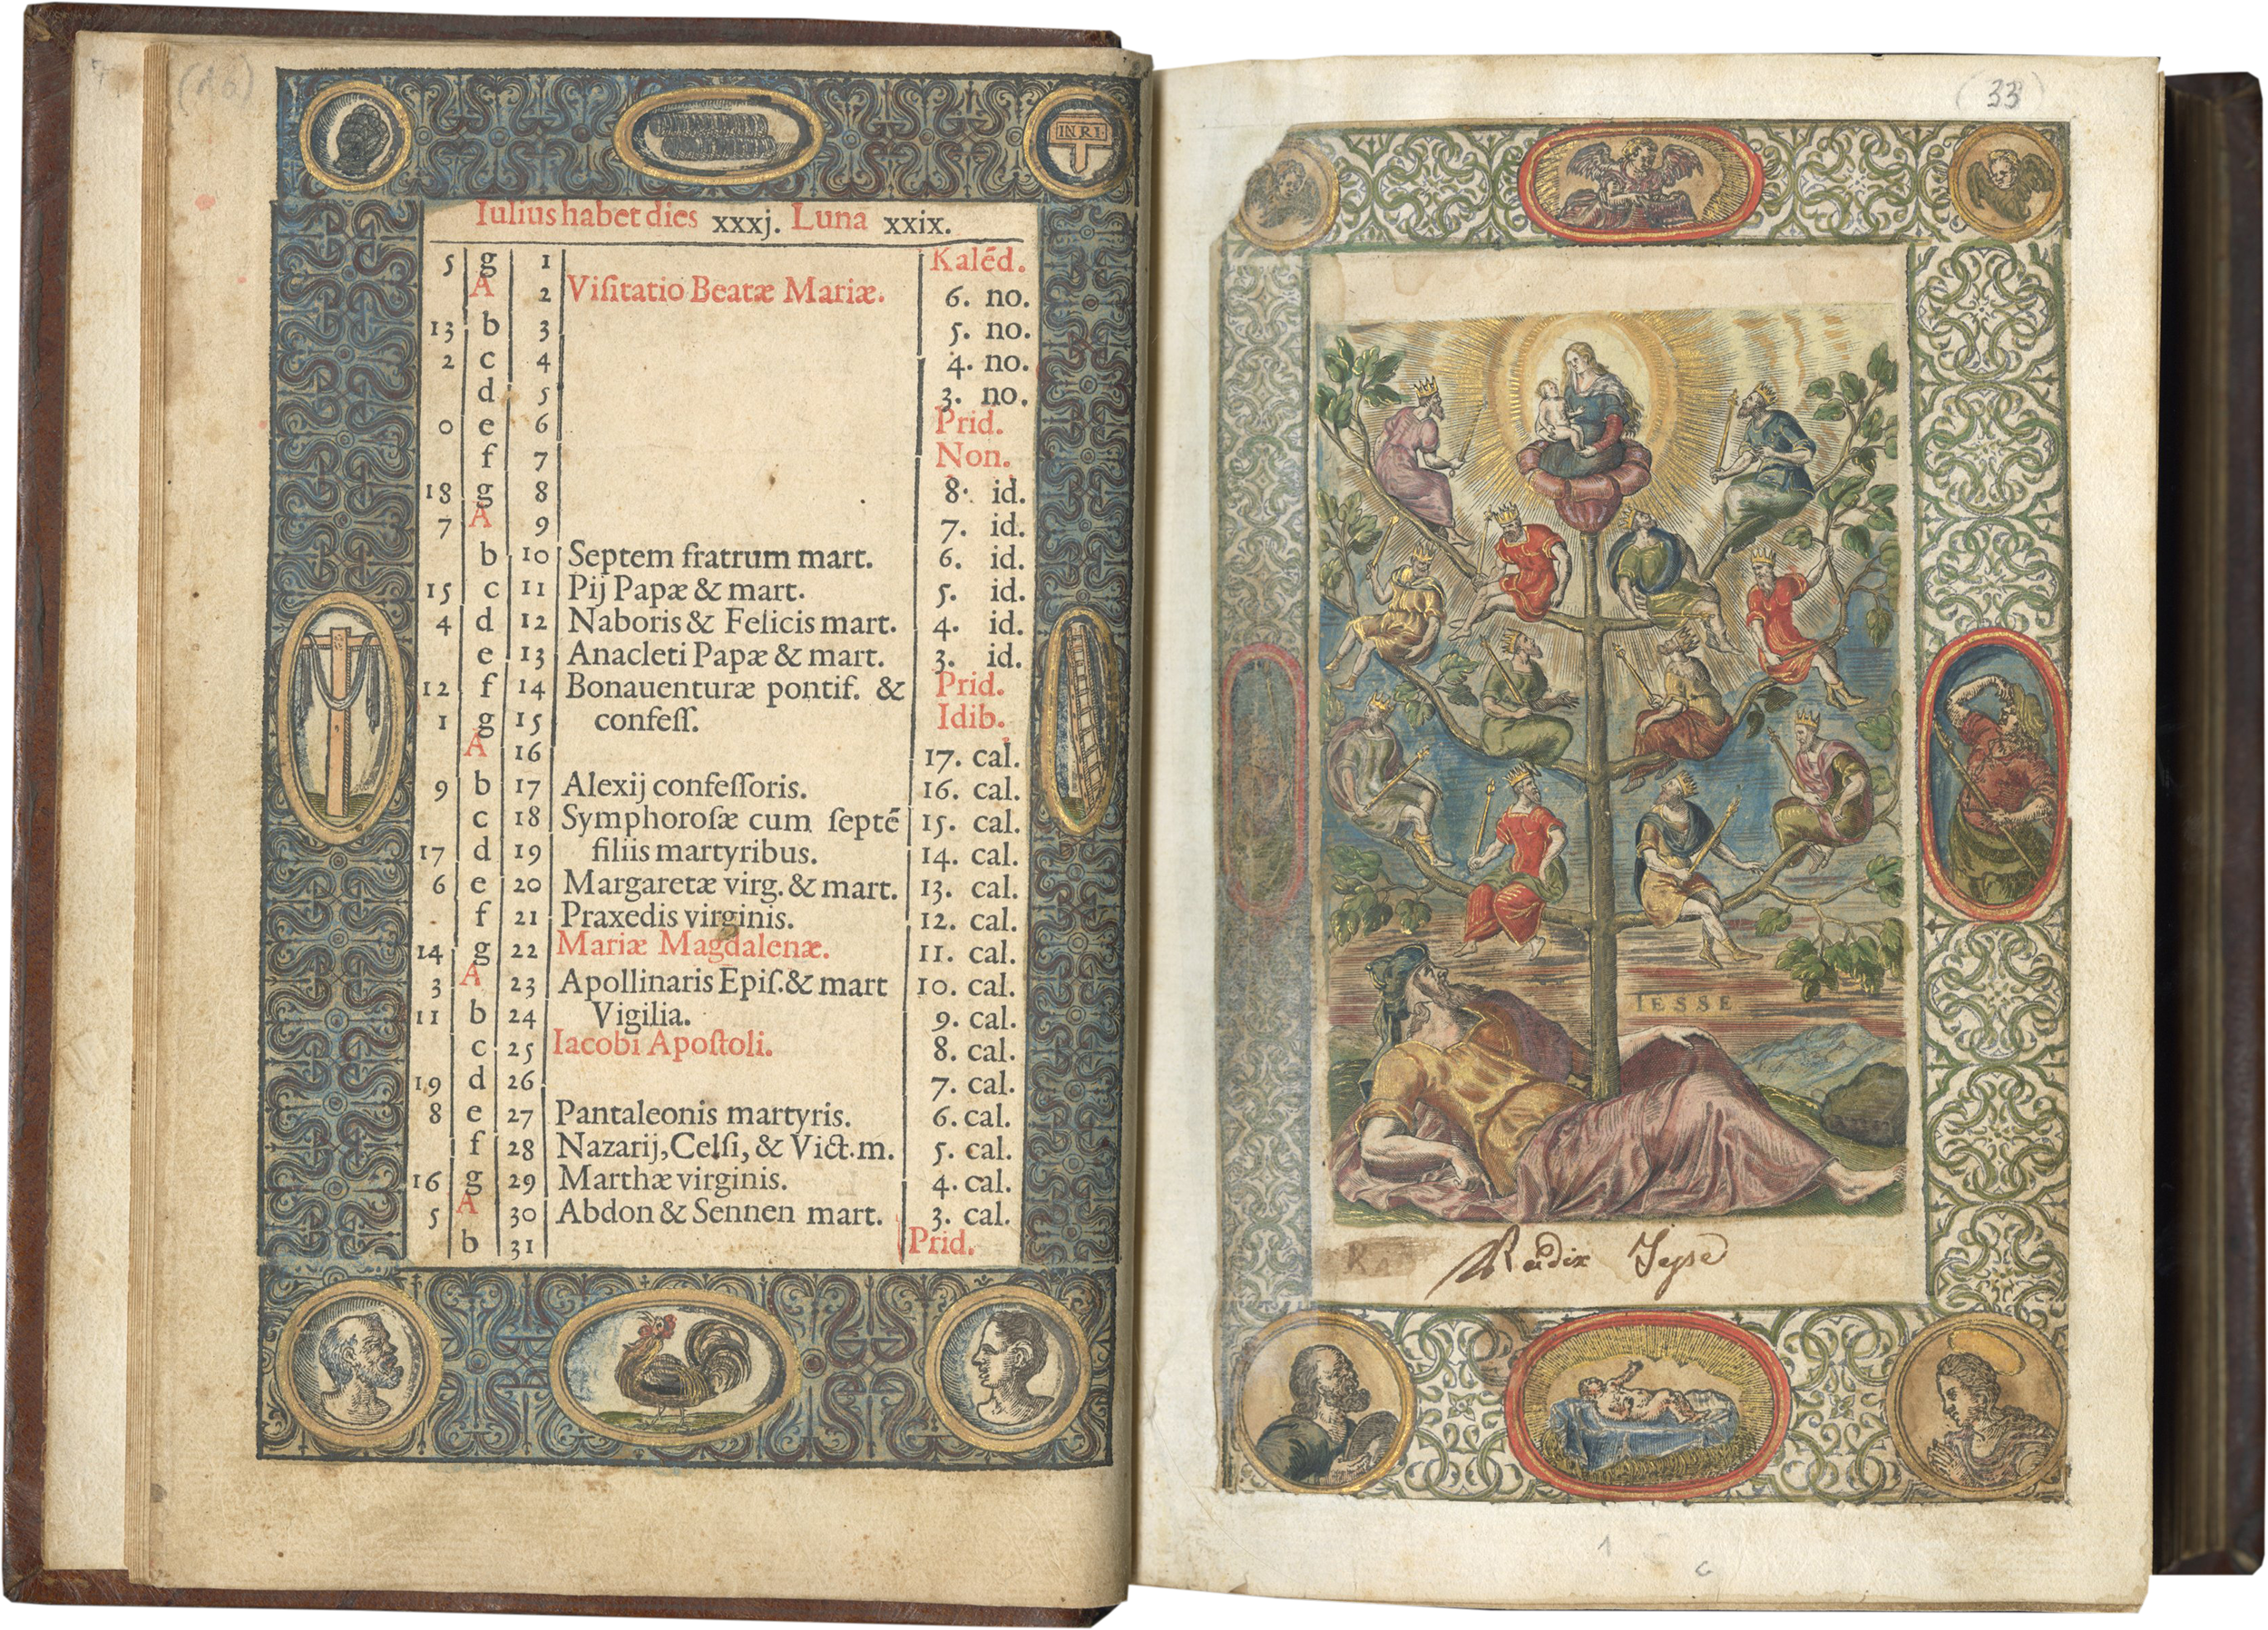 (16)
INRI
Iulius habet dies xxxj. Luna xxix.
5 g 1 Kalēd.
A 2 Viſitatio Beatæ Mariæ. 6. no.
13 b 3 5. no.
2 c 4 4. no.
d 5 3. no.
0 e 6 Prid.
f 7 Non.
18 g 8 8. id.
7 A 9 7. id.
b 10 Septem fratrum mart. 6. id.
15 c 11 Pij Papæ & mart. 5. id.
4 d 12 Naboris & Felicis mart. 4. id.
e 13 Anacleti Papæ & mart. 3. id.
12 f 14 Bonauenturæ pontif. & Prid.
1 g 15 confeſſ. Idib.
A 16 17. cal.
9 b 17 Alexij confeſſoris. 16. cal.
c 18 Symphoroſæ cum ſeptē 15. cal.
17 d 19 filiis martyribus. 14. cal.
6 e 20 Margaretæ virg. & mart. 13. cal.
f 21 Praxedis virginis. 12. cal.
14 g 22 Mariæ Magdalenæ. 11. cal.
3 A 23 Apollinaris Epiſ. & mart 10. cal.
11 b 24 Vigilia. 9. cal.
c 25 Iacobi Apoſtoli. 8. cal.
19 d 26 7. cal.
8 e 27 Pantaleonis martyris. 6. cal.
f 28 Nazarij, Celſi, & Vict. m. 5. cal.
16 g 29 Marthæ virginis. 4. cal.
5 A 30 Abdon & Sennen mart. 3. cal.
b 31 Prid.
(33)
IESSE
Radix Jesse